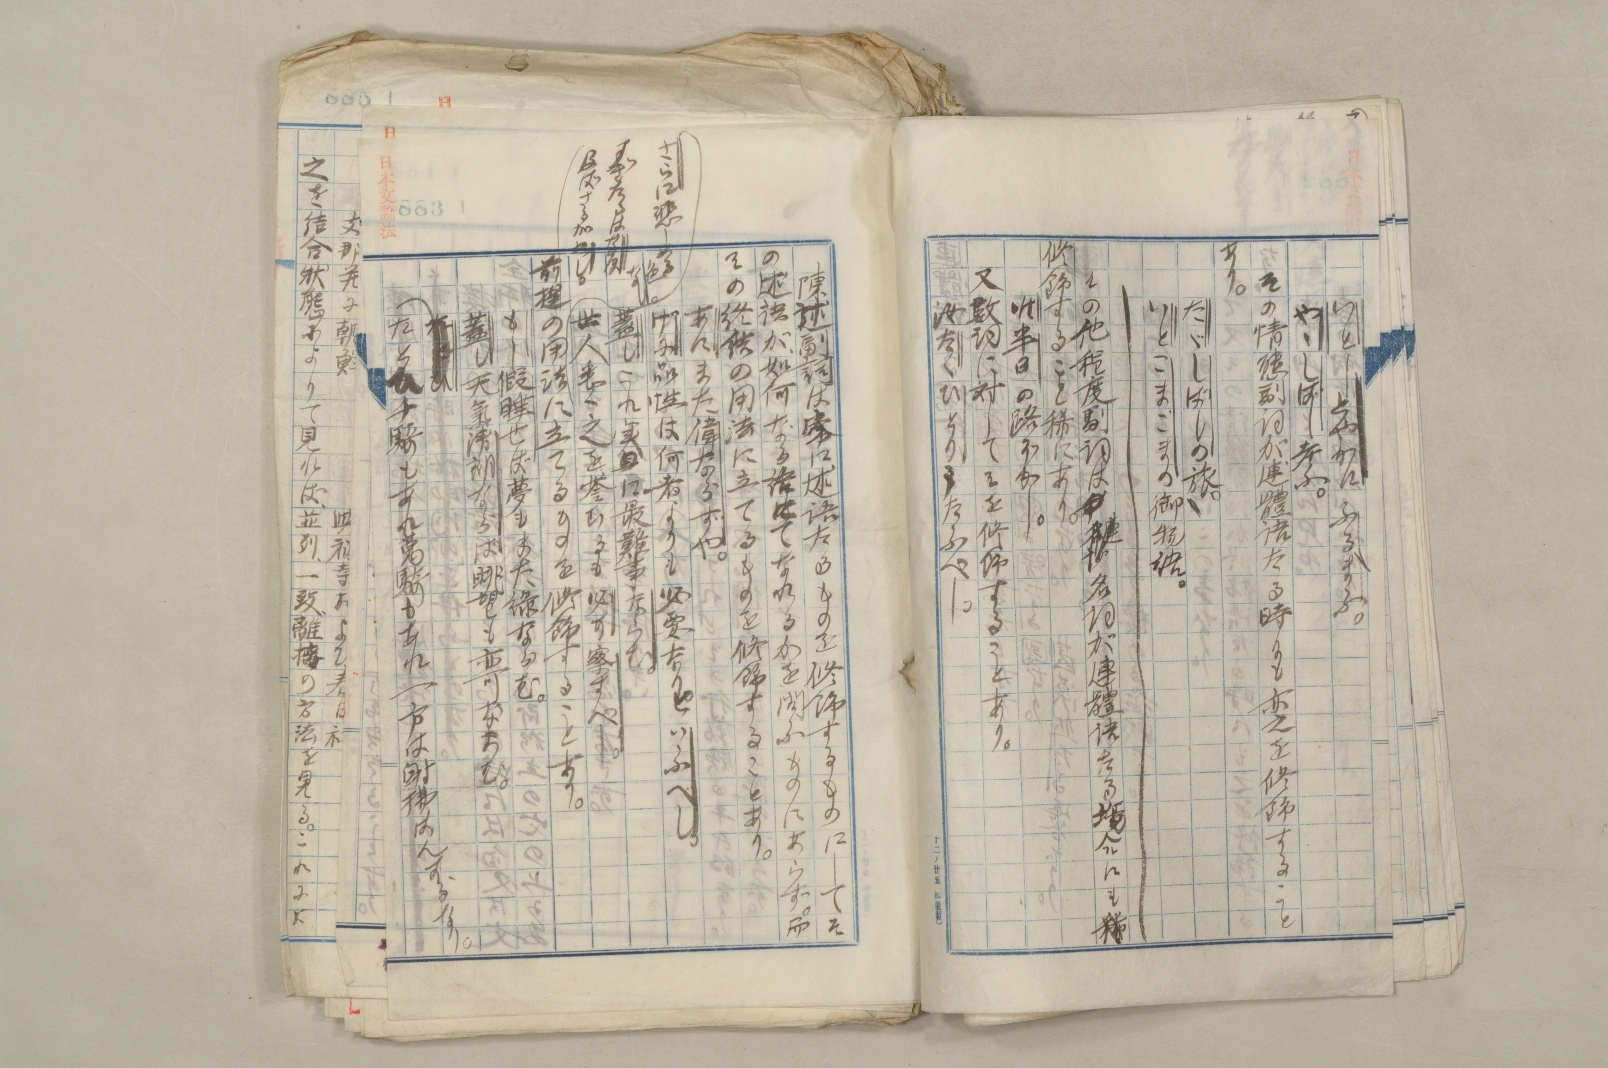 いとしづかにふるまふ。
やゝしばし考ふ。
その情態副詞が連體語たる時にも亦之を修飾すること
あり。
たゞしばしの旅。
いとこまごまの御物語。
その他程度副詞は名詞が連體語たる場合にも稀
修飾すること稀にあり。
唯半日の路なかし。
又數詞に対して之を修飾することあり。
汝たゞひとりきたふべし。
陳述副詞は常に述語たるものを修飾するものにしてそ
の述語が如何なる語にてなれるかを問ふものにあらず。而
その終結の用法に立てるものを修飾することあり。
あにまた偉ならずや。
げに品性は何者よりも必要なりといふべし。
蓋しこれ等自に最難事ならむ。
世人悉く之を誉むるも必ず察すべし。
前提の用法に立てるものを修飾することあり。
もし假睡せば夢もまた綠ならむ。
蓋し天氣清朗ならば眺望も亦可なあむ。
たとひ
たとひ十騎もあれ萬騎もあれ一方は射拂はんずるなり。
さらに悲
及ばざる加
日本文論法
883
支那幷に朝鮮
之を結合状態によりて見れば、並列、一致、離接の方法を見る。これによ